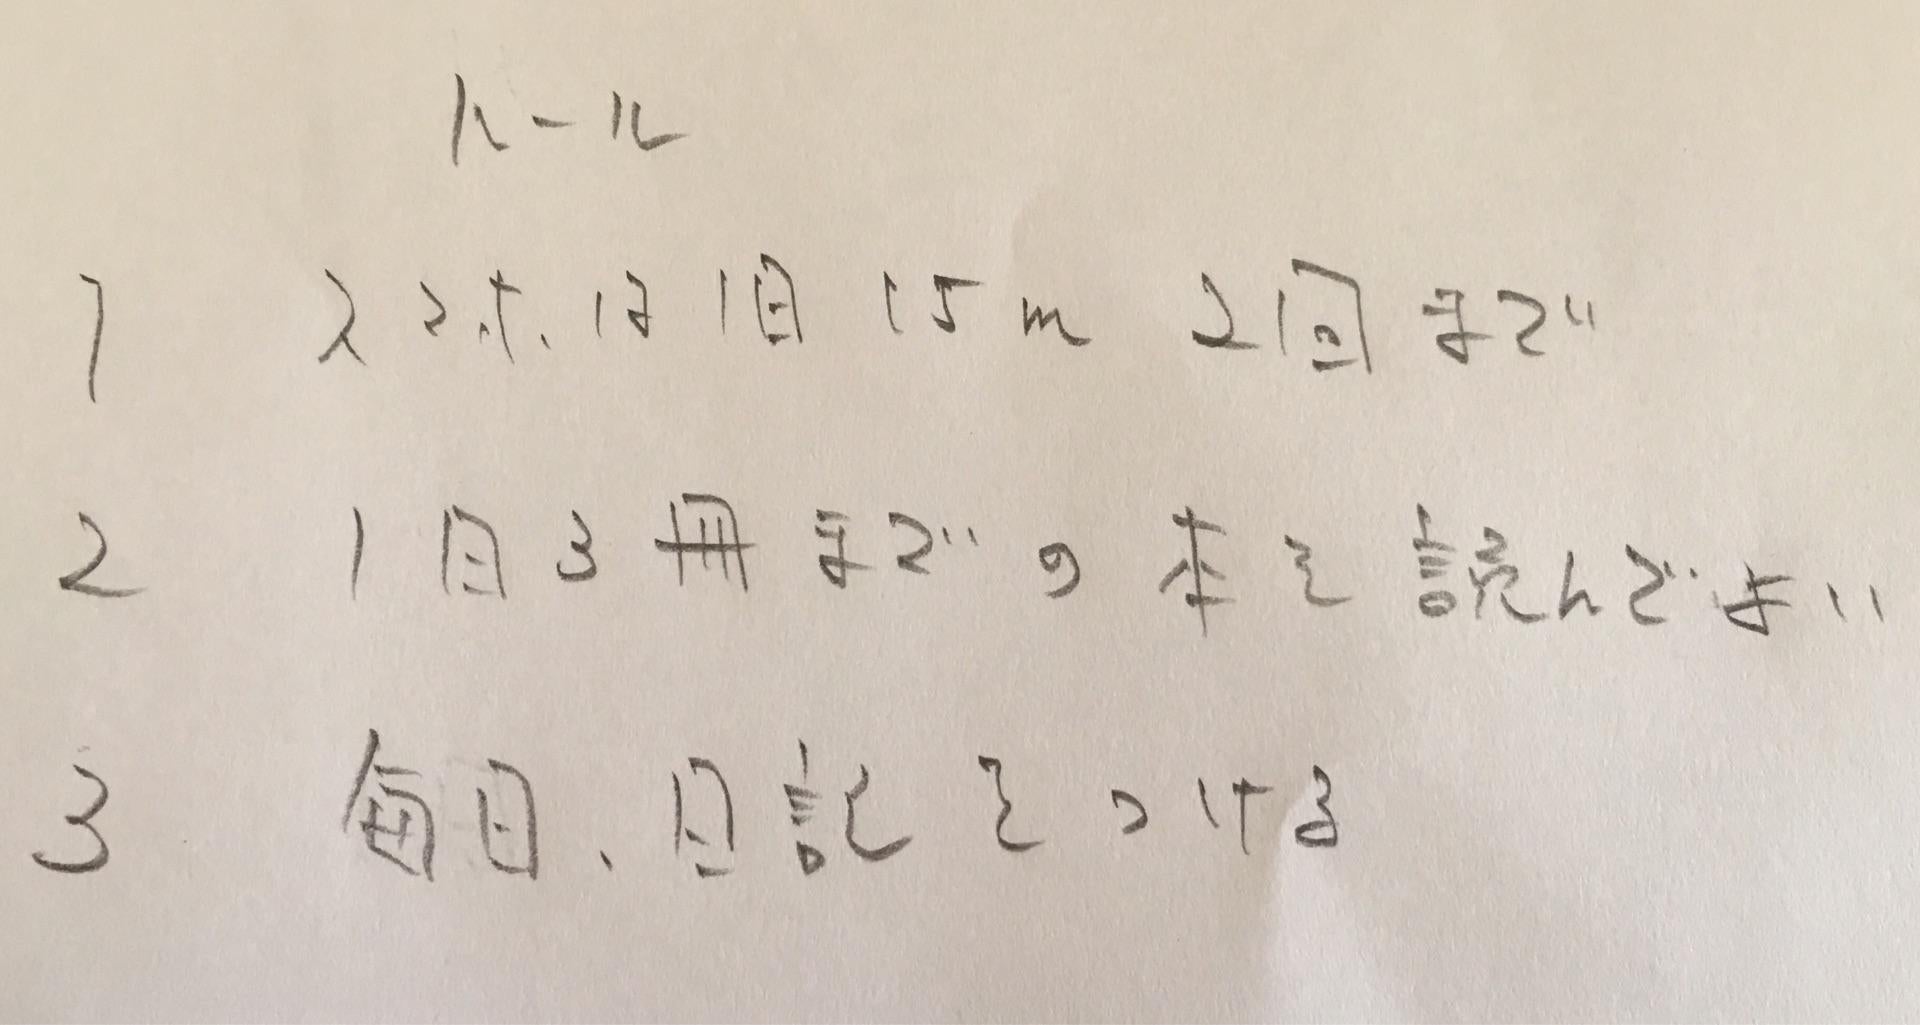 ルール
1 スマホは1日15m 2回まで
2 1日3冊までの本を読んでよい
3 毎日、日記をつける